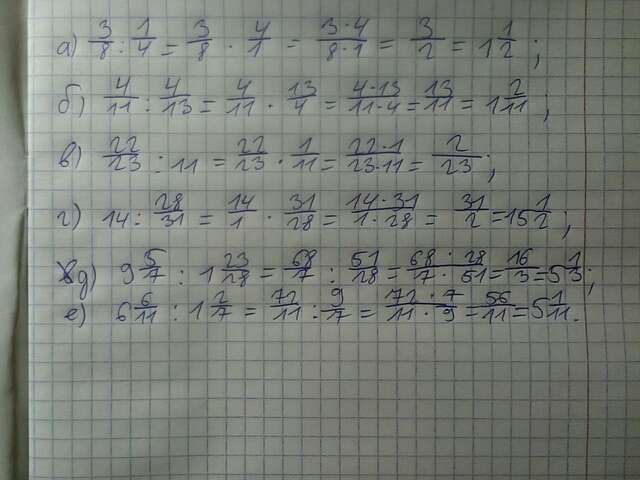 а) 3/8 : 1/4 = 3/8 · 4/1 = 3·4/8·1 = 3/2 = 1 1/2 ;
б) 4/11 : 4/13 = 4/11 · 13/4 = 4·13/11·4 = 13/11 = 1 2/11 ;
в) 22/23 : 11 = 22/23 · 1/11 = 22·1/23·11 = 2/23 ;
г) 14 : 28/31 = 14/1 · 31/28 = 14·31/1·28 = 31/2 = 15 1/2 ;
д) 9 5/7 : 1 23/28 = 68/7 : 51/28 = 68·28/7·51 = 16/3 = 5 1/3 ;
е) 6 6/11 : 1 2/7 = 72/11 : 9/7 = 72·7/11·9 = 56/11 = 5 1/11 .